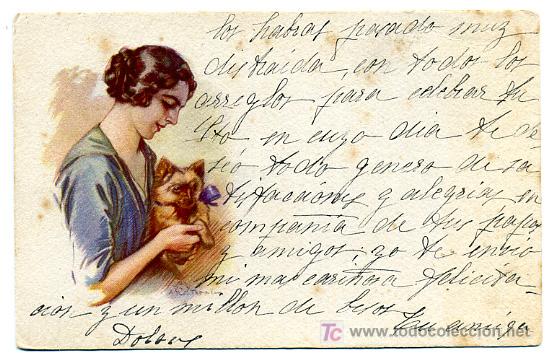 los habras pasado muy
distraida, con todos los
arreglos para celebrar tu
Sto en cuyo dia te de
seo todo genero de sa
tisfacciones y alegrias en
compañia de tus papas
y amigos, yo te envio
mi mas cariñosa felicita
cion y un millon de besos
Tu amiga
Dolores
TC todocoleccion.net